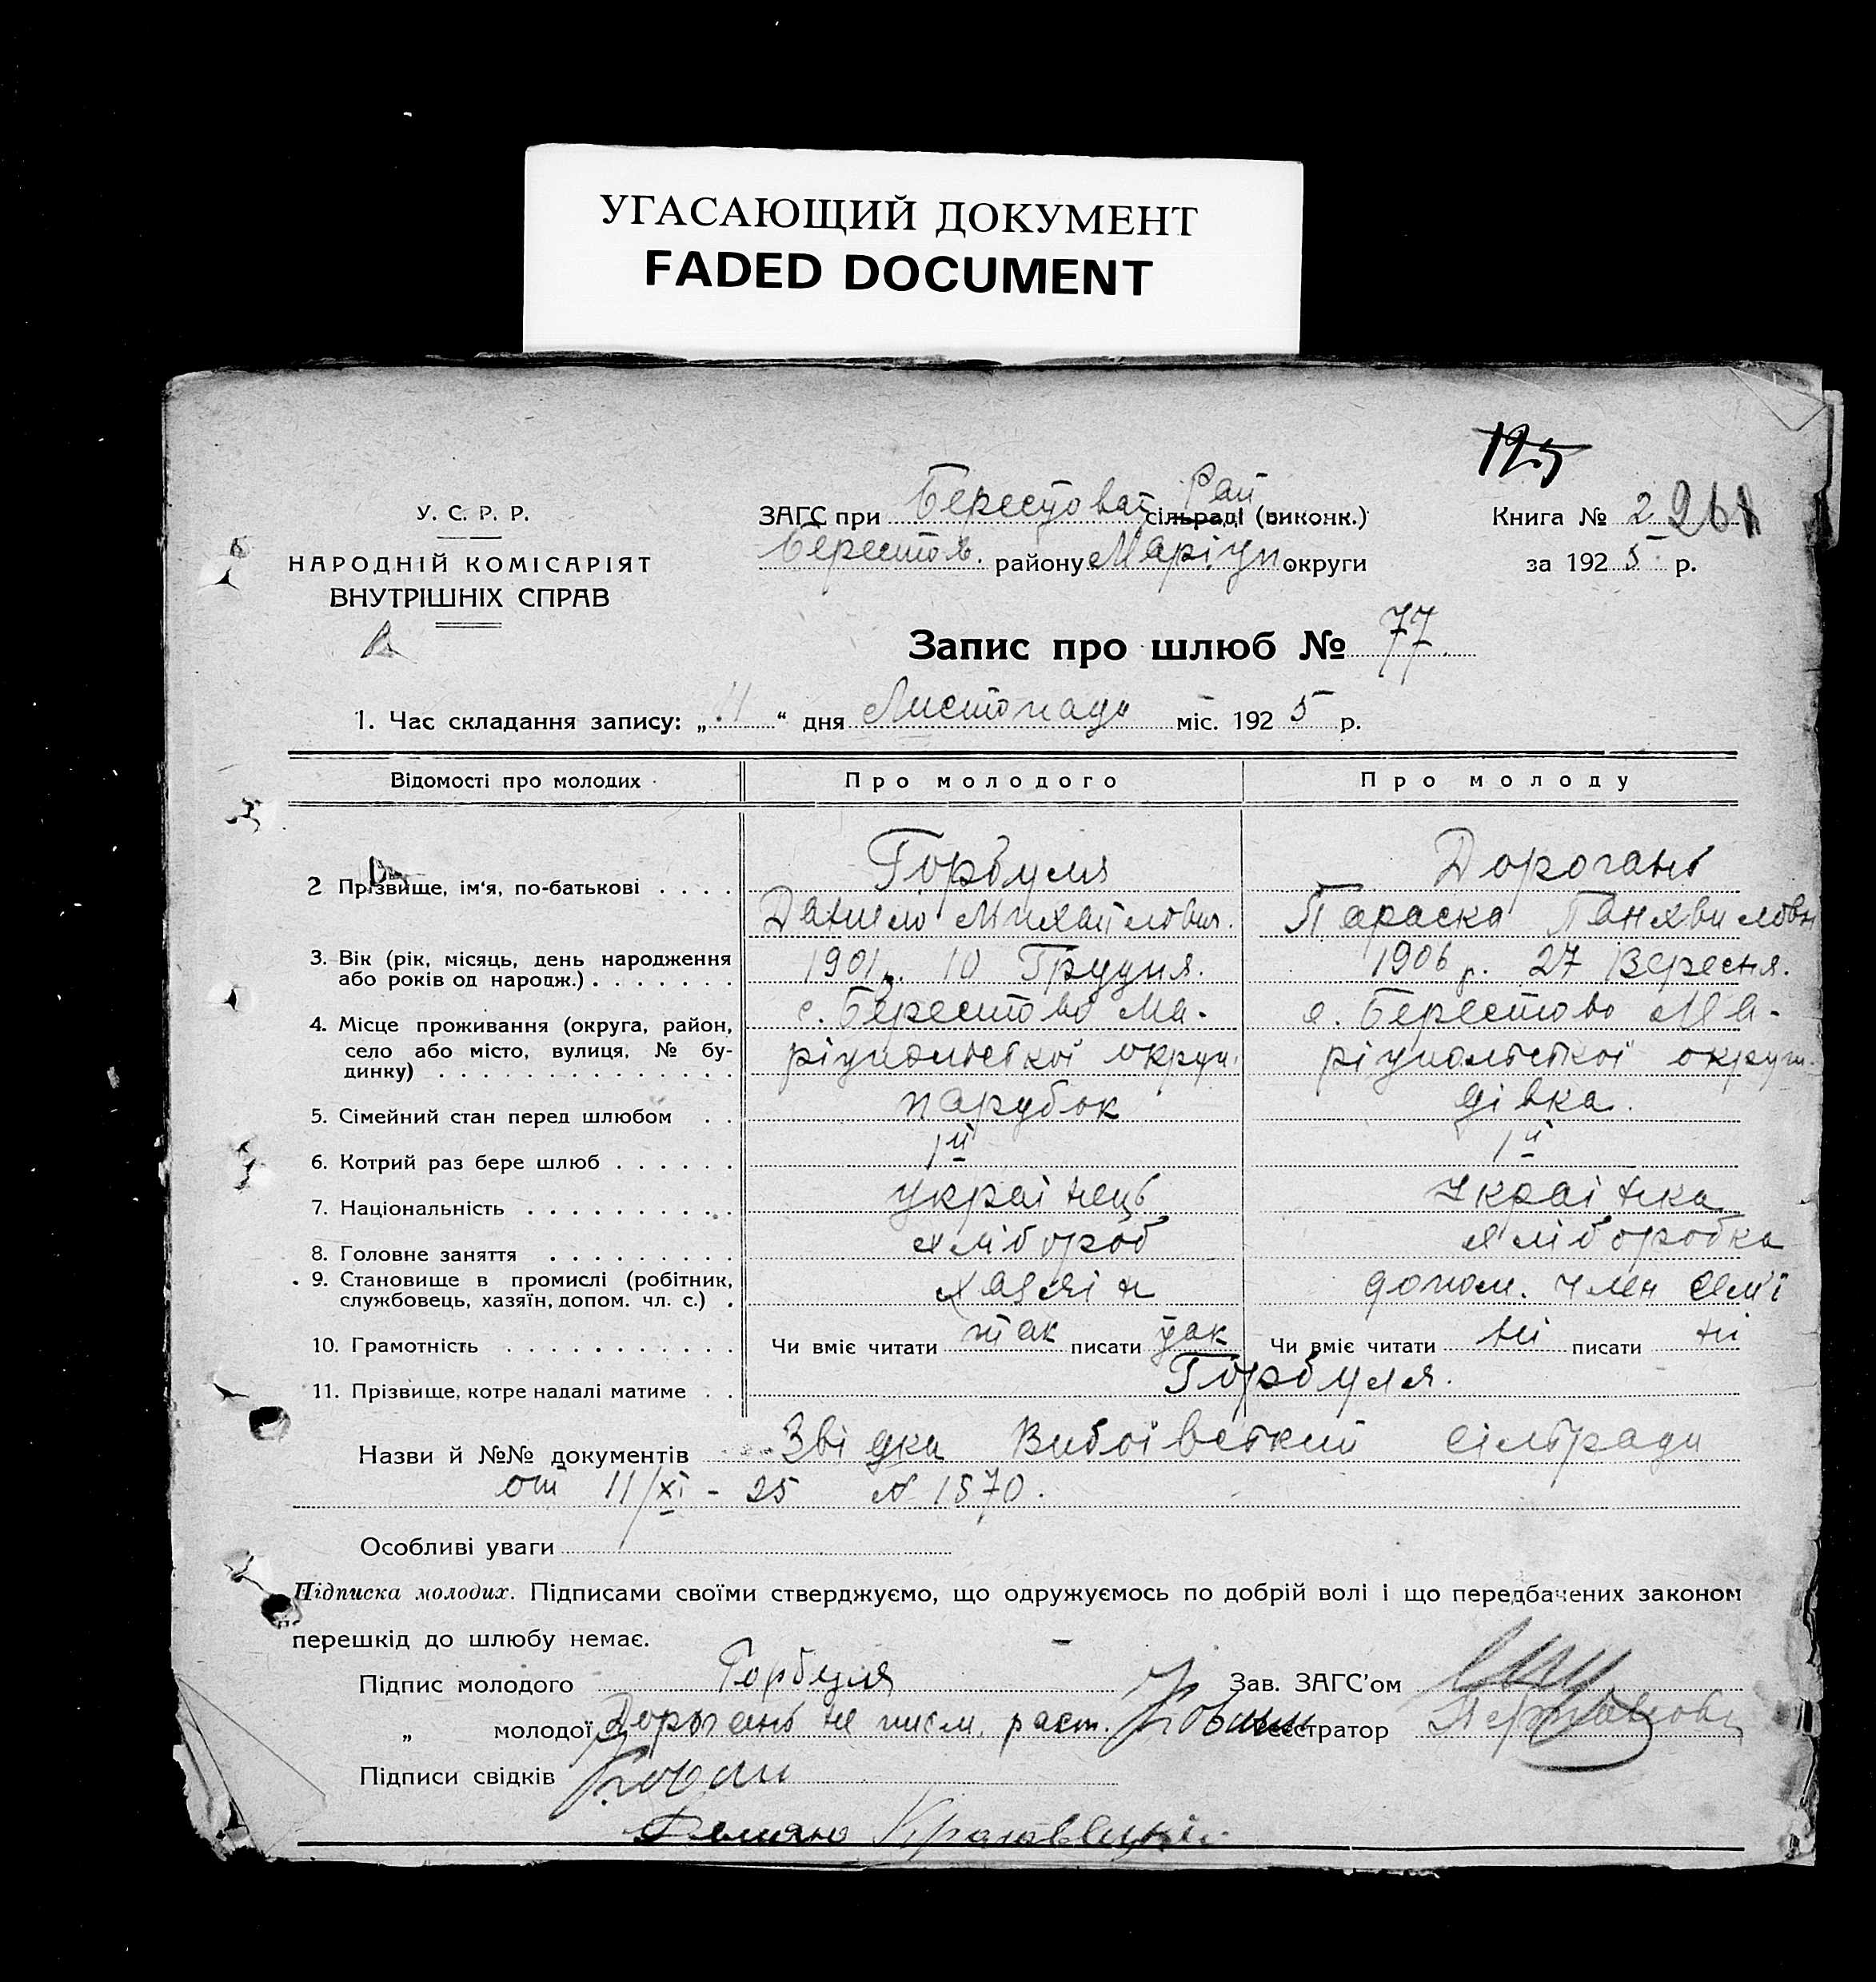 УГАСАЮЩИЙ ДОКУМЕНТ
FADED DOCUMENT
125
У. С. Р. Р.
НАРОДНІЙ КОМІСАРІЯТ
ВНУТРІШНІХ СПРАВ
ЗАГС при Берестоват Рай сільраді (виконк.)
Берестов. району Маріуп округи
Книга № 2 261
за 1925 р.
Запис про шлюб № 77.
1. Час складання запису: „11“ дня Листопада міс. 1925 р.
Відомості про молодих
Про молодого
Про молоду
2 Прізвище, ім'я, по-батькові . . . .
Горбуля
Данило Михайлович.
Дорогань
Параска Панхвиловн
3. Вік (рік, місяць, день народження
або років од народж.) . . . . . . .
1901 р. 10 Грудня.
1906 р. 27 Вересня.
4. Місце проживання (округа, район,
село або місто, вулиця, № бу-
динку) . . . . . . . . . . . . . .
с. Берестово Ма-
ріупольської округи
с. Берестово Ма-
ріупольської округи
5. Сімейний стан перед шлюбом . .
парубок
дівка.
6. Котрий раз бере шлюб . . . . . .
1й
1й
7. Національність . . . . . . . . . .
українець
Українка
8. Головне заняття . . . . . . . . .
хлібороб
хліборобка
9. Становище в промислі (робітник,
службовець, хазяїн, допом. чл. с.) .
хазяін
допом. член сем'ї
10. Грамотність . . . . . . . . . . .
Чи вміє читати так писати так
Чи вміє читати ні писати ні
11. Прізвище, котре надалі матиме . .
Горбуля.
Назви й №№ документів Звідка сільради
от 11/XI - 25 № 1570.
Особливі уваги
Підписка молодих. Підписами своїми стверджуємо, що одружуємось по добрій волі і що передбачених законом
перешкід до шлюбу немає.
Підпис молодого Горбуля
Зав. ЗАГС'ом
„ молодої Дорогань не письм. расп.
Реєстратор
Підписи свідків